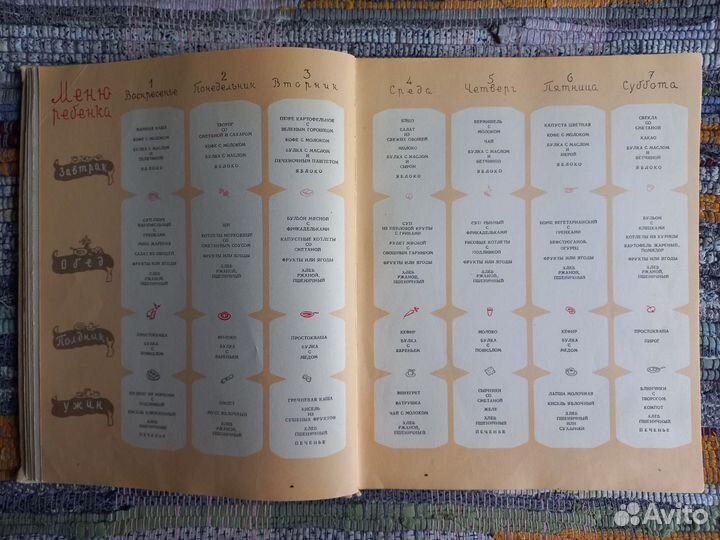 Меню
ребенка
1
Воскресенье
2
Понедельник
3
Вторник
4
Среда
5
Четверг
6
Пятница
7
Суббота
Завтрак
МАННАЯ КАША
КОФЕ С МОЛОКОМ
БУЛКА С МАСЛОМ
И
ЯБЛОКО
ТВОРОГ
СО
СМЕТАНОЙ И САХАРОМ
КОФЕ С МОЛОКОМ
БУЛКА С МАСЛОМ
ЯБЛОКО
ПЮРЕ КАРТОФЕЛЬНОЕ
С
ЗЕЛЕНЫМ ГОРОШКОМ
КОФЕ С МОЛОКОМ
БУЛКА С МАСЛОМ
И
ПЕЧЕНОЧНЫМ ПАШТЕТОМ
ЯБЛОКО
САЛАТ
ИЗ
СВЕЖИХ ОВОЩЕЙ
МОЛОКО
БУЛКА С МАСЛОМ
И
СЫРОМ
ЯБЛОКО
ВЕРМИШЕЛЬ
С
МОЛОКОМ
ЧАЙ
БУЛКА С МАСЛОМ
И
ВЕТЧИНОЙ
ЯБЛОКО
КАПУСТА ЦВЕТНАЯ
КОФЕ С МОЛОКОМ
БУЛКА С МАСЛОМ
И
ИКРОЙ
ЯБЛОКО
СВЕКЛА
СО
СМЕТАНОЙ
КАКАО
БУЛКА С МАСЛОМ
И
ВЕТЧИНОЙ
ЯБЛОКО
Обед
СУП-ПЮРЕ
КАРТОФЕЛЬНЫЙ
С
ГРЕНКАМИ
РЫБА ЖАРЕНАЯ
САЛАТ ИЗ ОВОЩЕЙ
ФРУКТЫ ИЛИ ЯГОДЫ
ХЛЕБ
РЖАНОЙ,
ПШЕНИЧНЫЙ
ЩИ
КОТЛЕТЫ МОРКОВНЫЕ
СО
СМЕТАННЫМ СОУСОМ
ФРУКТЫ ИЛИ ЯГОДЫ
ХЛЕБ
РЖАНОЙ, ПШЕНИЧНЫЙ
БУЛЬОН МЯСНОЙ
С
ФРИКАДЕЛЬКАМИ
КАПУСТНЫЕ КОТЛЕТЫ
СО
СМЕТАНОЙ
ФРУКТЫ ИЛИ ЯГОДЫ
ХЛЕБ
РЖАНОЙ,
ПШЕНИЧНЫЙ
СУП
ИЗ ПЕРЛОВОЙ КРУПЫ
С ГРИБАМИ
РУЛЕТ МЯСНОЙ
С
ОВОЩНЫМ ГАРНИРОМ
ФРУКТЫ ИЛИ ЯГОДЫ
ХЛЕБ
РЖАНОЙ,
ПШЕНИЧНЫЙ
СУП РЫБНЫЙ
С
ФРИКАДЕЛЬКАМИ
РИСОВЫЕ КОТЛЕТЫ
С
ПОДЛИВКОЙ
ФРУКТЫ ИЛИ ЯГОДЫ
ХЛЕБ
РЖАНОЙ,
ПШЕНИЧНЫЙ
БОРЩ ВЕГЕТАРИАНСКИЙ
С
ГРЕНКАМИ
БЕФСТРОГАНОВ,
ОГУРЕЦ
ФРУКТЫ ИЛИ ЯГОДЫ
ХЛЕБ
РЖАНОЙ,
ПШЕНИЧНЫЙ
БУЛЬОН
С
КЛЕЦКАМИ
КОТЛЕТЫ ИЗ КУРИЦЫ
КАРТОФЕЛЬ ЖАРЕНЫЙ,
ПОМИДОР
ФРУКТЫ ИЛИ ЯГОДЫ
ХЛЕБ
РЖАНОЙ,
ПШЕНИЧНЫЙ
Полдник
ПРОСТОКВАША
БУЛКА
С
ПОВИДЛОМ
МОЛОКО
БУЛКА
С
ВАРЕНЬЕМ
ПРОСТОКВАША
БУЛКА
С
МЕДОМ
КЕФИР
БУЛКА
С
ВАРЕНЬЕМ
МОЛОКО
БУЛКА
С
ПОВИДЛОМ
КЕФИР
БУЛКА
С
МЕДОМ
ПРОСТОКВАША
ПИРОГ
Ужин
С
ХЛЕБ
ПШЕНИЧНЫЙ
ПЕЧЕНЬЕ
ОМЛЕТ
МУСС ЯБЛОЧНЫЙ
ХЛЕБ
РЖАНОЙ,
ПШЕНИЧНЫЙ
ГРЕЧНЕВАЯ КАША
КИСЕЛЬ
ИЗ
СУШЕНЫХ ФРУКТОВ
ХЛЕБ
ПШЕНИЧНЫЙ
ПЕЧЕНЬЕ
ВИНЕГРЕТ
ВАТРУШКА
ЧАЙ С МОЛОКОМ
ХЛЕБ
РЖАНОЙ,
ПШЕНИЧНЫЙ
СЫРНИКИ
СО
СМЕТАНОЙ
ЖЕЛЕ
ХЛЕБ
ПШЕНИЧНЫЙ
ПЕЧЕНЬЕ
ЛАПША МОЛОЧНАЯ
КИСЕЛЬ ЯБЛОЧНЫЙ
ХЛЕБ
ПШЕНИЧНЫЙ
ИЛИ
СУХАРИК
БЛИНЧИКИ
С
ТВОРОГОМ
КОМПОТ
ХЛЕБ
ПШЕНИЧНЫЙ
ПЕЧЕНЬЕ
Avito